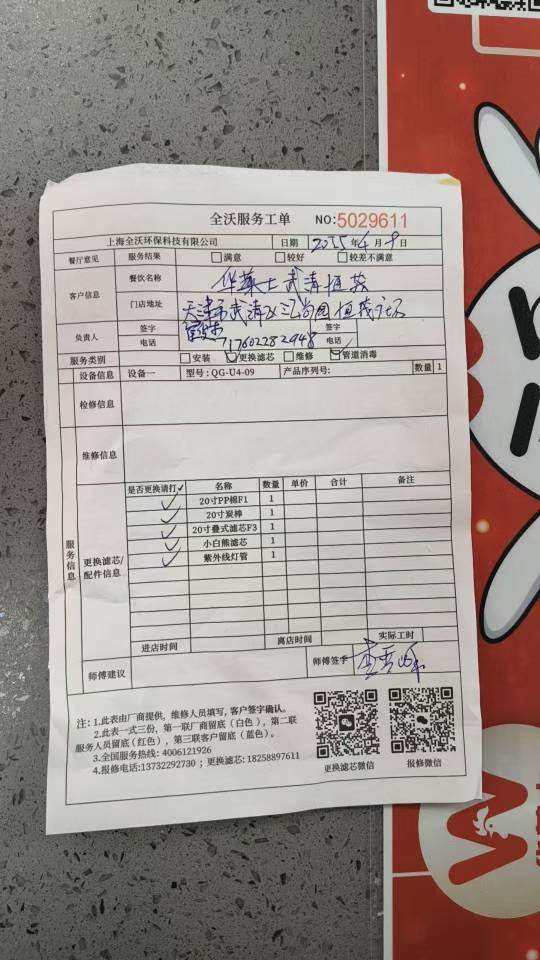 全沃服务工单 NO:5029611
上海全沃环保科技有限公司 日期 2025年4月9日
餐厅意见 服务结果 满意 较好 较差不满意
客户信息 餐饮名称 华莱士武清恒茂
门店地址 天津市武清区
负责人 签字 签字
电话 17602282948 电话
服务类别 安装 更换滤芯 维修 管道消毒
设备信息 设备一 型号:QG-U4-09 产品序列号: 数量 1
检修信息
维修信息
服务信息
更换滤芯/配件信息
是否更换请打✓ 名称 数量 单价 合计 备注
✓ 20寸PP棉F1 1
✓ 20寸炭棒 1
✓ 20寸叠式滤芯F3 1
✓ 小白熊滤芯 1
✓ 紫外线灯管 1
进店时间 离店时间 实际工时
师傅建议 师傅签字
注: 1.此表由厂商提供，维修人员填写，客户签字确认。
2.此表一式三份，第一联厂商留底（白色），第二联
服务人员留底（红色），第三联客户留底（蓝色）。
3.全国服务热线: 4006121926
4.报修电话:13732292730 ; 更换滤芯: 18258897611
更换滤芯微信 报修微信